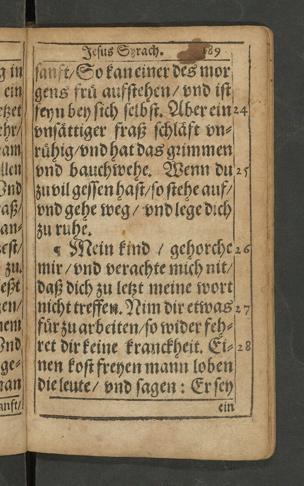 Jesus Syrach. 189
sanft/ So kan einer des mor
gens frü aufstehen/ vnd ist
seyn bey sich selbst. Aber ein 24
vnsättiger fraß schläft vn-
rühig/ vnd hat das grimmen
vnd bauchwehe. Wenn du 25
zu vil gessen hast/ so stehe auf/
vnd gehe weg/ vnd lege dich
zu ruhe.
¶ Mein kind / gehorche 26
mir/ vnd verachte mich nit/
daß dich zu letzt meine wort
nicht treffen. Nim dir etwas 27
für zu arbeiten/ so wider feh-
ret dir keine kranckheit. Ei- 28
nen kost freyen mann loben
die leute/ vnd sagen: Er sey
ein
g in
ein
etzet
ehr/
am
llen
Vnd
aß/
an-
zest/
zu.
eßt
zen/
nem
Vnd
ge-
nan
anft/